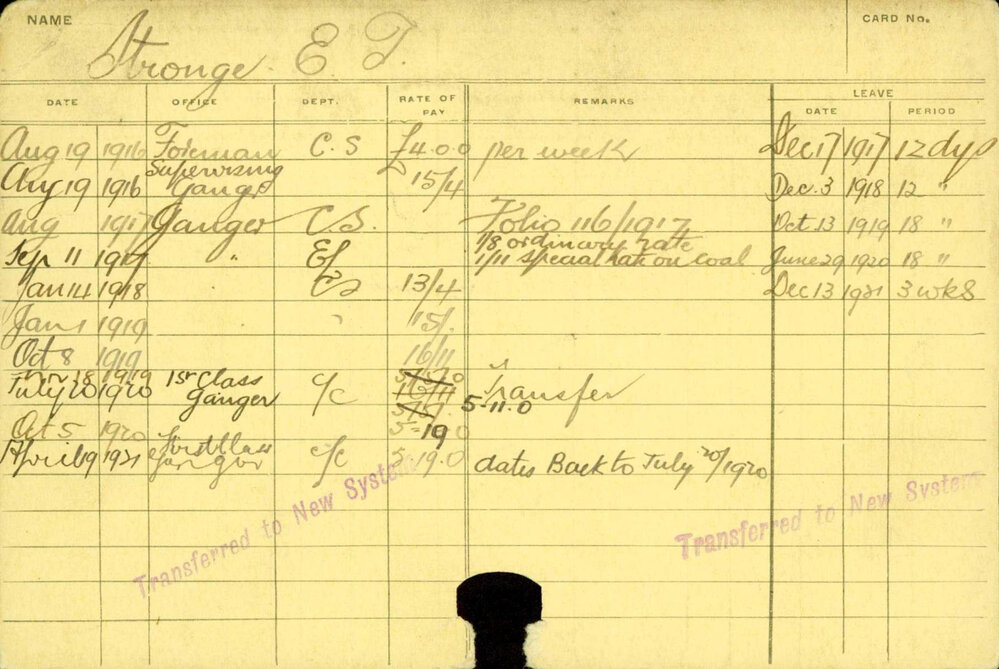 NAME
CARD No.
Stronge. E. T.
DATE OFFICE DEPT. RATE OF PAY REMARKS LEAVE
DATE PERIOD
Aug 19 1916 Foreman C.S £4.0.0 per week Dec 17 1917 12 dys
Aug 19 1916 Supervising Ganger 15/4 Dec. 3 1918 12 "
Aug 1917 Ganger C.S. Folio 116/1917 Oct 13 1919 18 "
1/8 ordinary rate
Sep 11 1917 " 1/11 special rate on coal June 29 1920 18 "
Jan 14 1918 13/4 Dec 13 1921 3 wks
Jan 1 1919 " 15/.
Oct 8 1919 16/11
18 1919 1st Class
July 20 1920 Ganger c/c 16/11 Transfer
5-11.0
Oct 5 1920 5-19 0
April 19 1921 First Class Ganger c/c 5.19.0 dates Back to July 20/1920
Transferred to New System
Transferred to New System